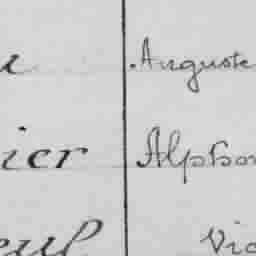 u Auguste
ier Alphon
eul Vic